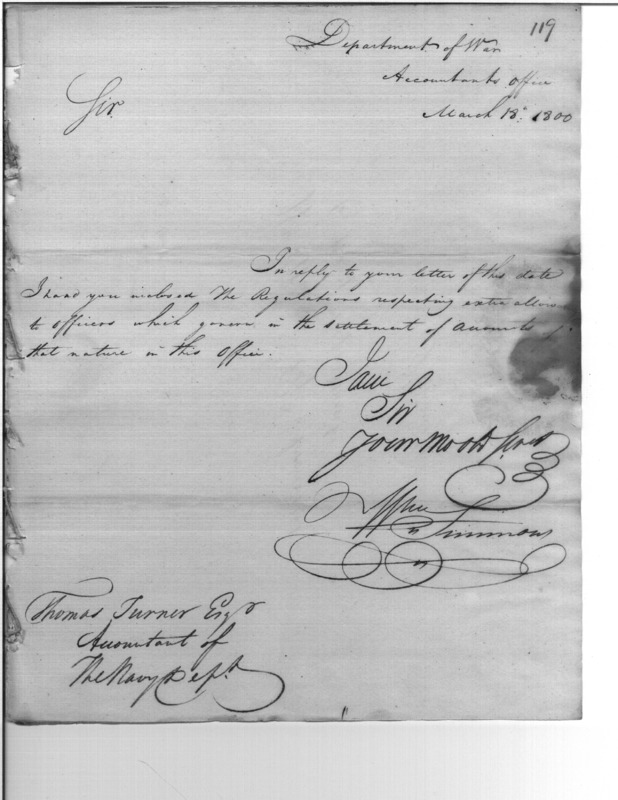 119
Department of War
Accountants Office
March 18th. 1800
Sir
In reply to your letter of this date
I hand you inclosed The Regulations respecting extra allowan
to officers which govern in the settlement of accounts of
that nature in this Office.
I am
Sir
Your Mo Ob Servt
Wm Simmons
Thomas Turner Esqr
Accountant of
The Navy Dept